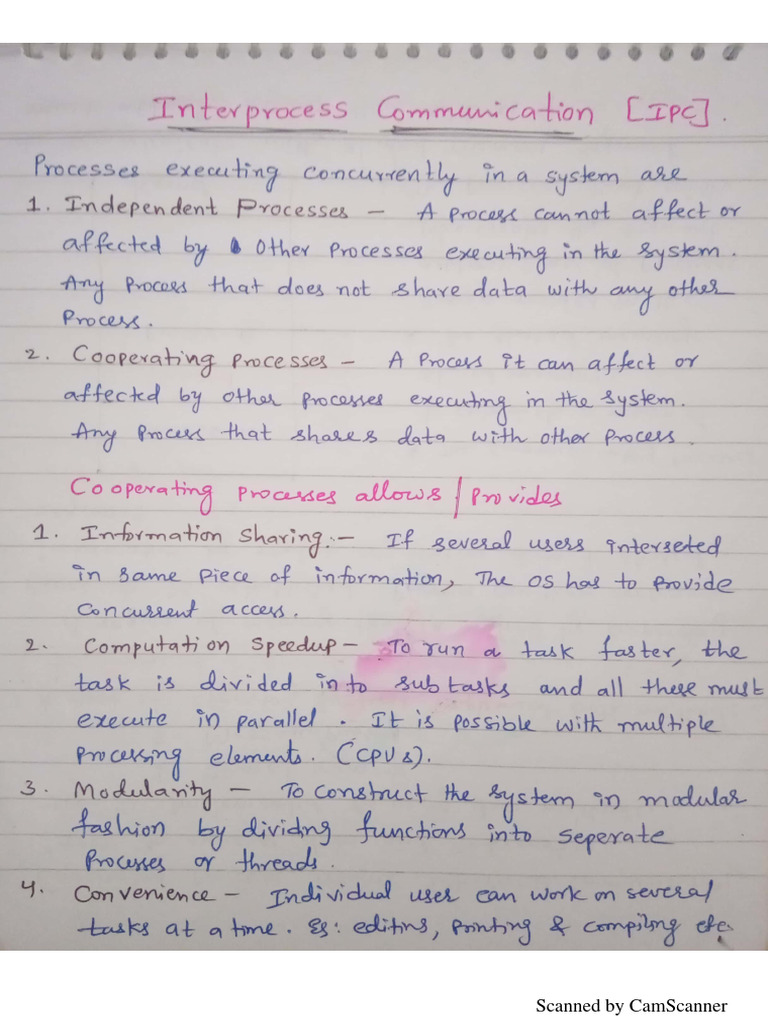 Interprocess Communication [IPC].
Processes executing concurrently in a system are
1. Independent Processes - A process cannot affect or
affected by other processes executing in the system.
Any process that does not share data with any other
Process.
2. Cooperating processes - A process it can affect or
affected by other processes executing in the system.
Any process that shares data with other process.
Cooperating processes allows / Provides
1. Information sharing:- If several users interseted
in same piece of information, The OS has to provide
concurrent access.
2. Computation speedup - To run a task faster, the
task is divided into subtasks and all these must
execute in parallel. It is possible with multiple
processing elements. (CPUs).
3. Modularity - To construct the system in modular
fashion by dividng functions into seperate
processes or threads.
4. Convenience - Individual user can work on several
tasks at a time. Eg: editing, printing & compiling etc.
Scanned by CamScanner